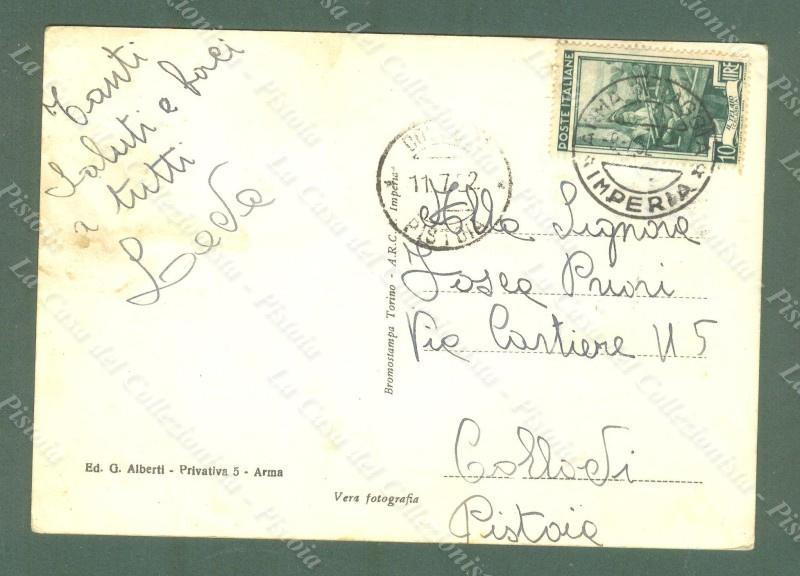 Tanti
Saluti e baci
a tutti
Leda
POSTE ITALIANE
10 LIRE
IMPERIA
11.7.52
PISTOIA
Alla Signora
Tosca Puori
Via Cartiere N 5
Collodi
Pistoia
Bromostampa Torino - A.R.C. Imperia
Ed. G. Alberti - Privativa 5 - Arma
Vera fotografia
La Casa del Collezionista - Pistoia